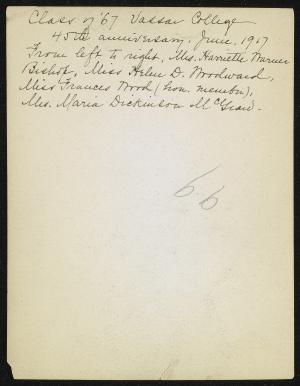 Class of '67 Vassar College
45th anniversary. June, 1917
From left to right, Mrs. Harriette Warner
Bishop, Miss Helen D. Woodward,
Miss Frances Wood (hon. member),
Mrs. Maria Dickinson McGraw.
6-6